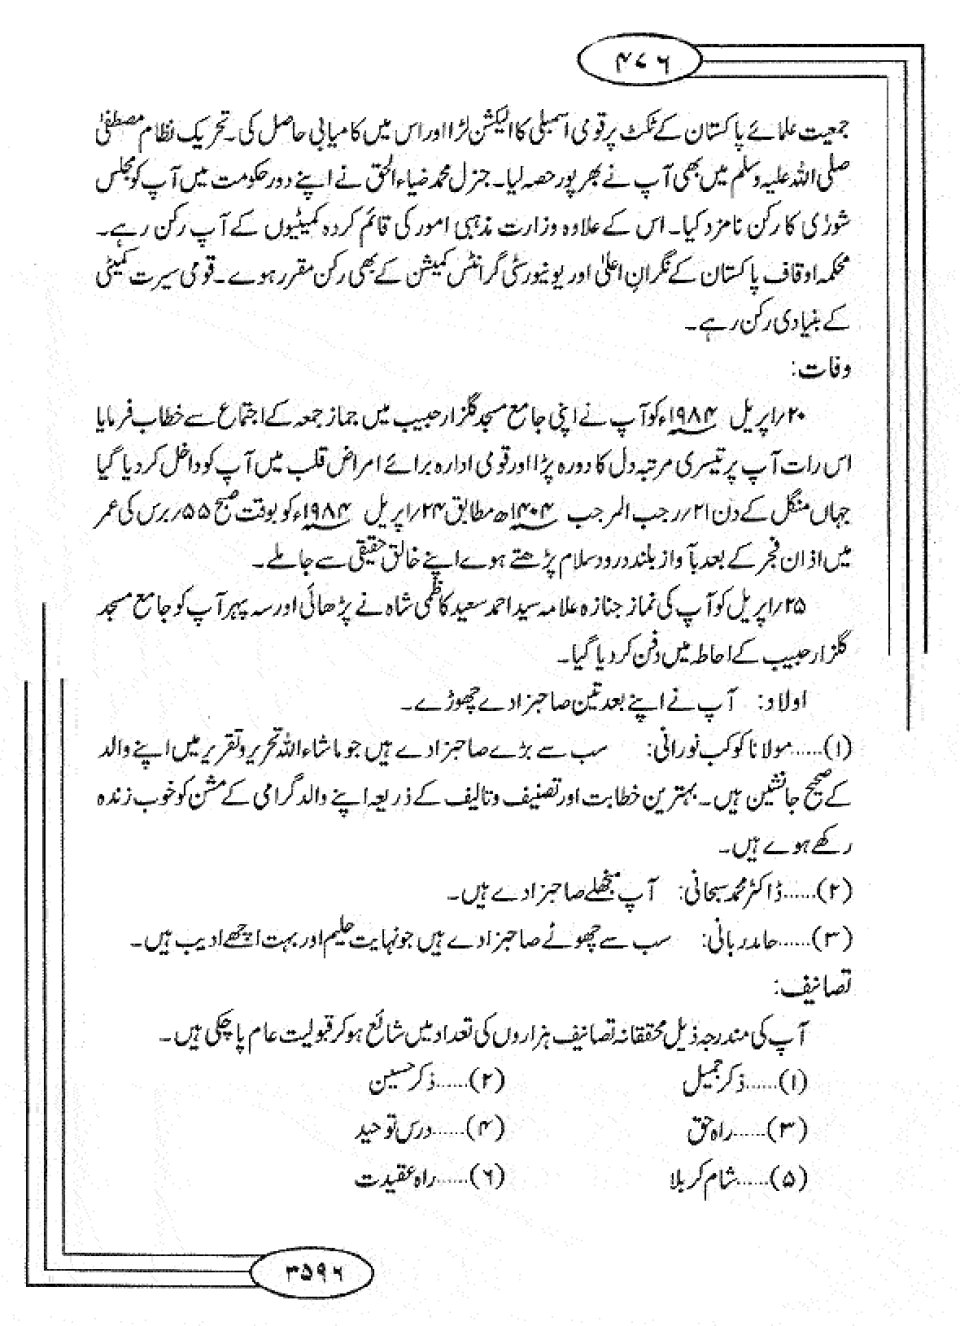 ۴۷۶
جمعیت علمائے پاکستان کے ٹکٹ پر قومی اسمبلی کا الیکشن لڑا اور اس میں کامیابی حاصل کی۔ تحریک نظام مصطفیٰ
صلی اللہ علیہ وسلم میں بھی آپ نے بھر پور حصہ لیا۔ جنرل محمد ضیاء الحق نے اپنے دور حکومت میں آپ کو مجلس
شورٰی کا رکن نامزد کیا۔ اس کے علاوہ وزارت مذہبی امور کی قائم کردہ کمیٹیوں کے آپ رکن رہے۔
محکمہ اوقاف پاکستان کے نگران اعلیٰ اور یونیورسٹی گرانٹس کمیشن کے بھی رکن مقرر ہوے۔ قومی سیرت کمیٹی
کے بنیادی رکن رہے۔
وفات:
۲۰؍اپریل ۱۹۸۴ء کو آپ نے اپنی جامع مسجد گلزار حبیب میں جماز جمعہ کے اجتماع سے خطاب فرمایا
اس رات آپ پر تیسری مرتبہ دل کا دورہ پڑا اور قومی ادارہ برائے امراض قلب میں آپ کو داخل کر دیا گیا
جہاں منگل کے دن ۲۱؍رجب المرجب ۱۴۰۴ھ مطابق ۲۴؍اپریل ۱۹۸۴ء کو بوقت صبح ۵۵؍برس کی عمر
میں اذان فجر کے بعد بآواز بلند درود سلام پڑھتے ہوے اپنے خالق حقیقی سے جا ملے۔
۲۵؍اپریل کو آپ کی نماز جنازہ علامہ سید احمد سعید کاظمی شاہ نے پڑھائی اور سہ پہر آپ کو جامع مسجد
گلزار حبیب کے احاطہ میں دفن کر دیا گیا۔
اولاد: آپ نے اپنے بعد تین صاحبزادے چھوڑے۔
(۱).....مولانا کوکب نورانی: سب سے بڑے صاحبزادے ہیں جو ماشاء اللہ تحریر و تقریر میں اپنے والد
کے صحیح جانشین ہیں۔ بہترین خطابت اور تصنیف و تالیف کے ذریعہ اپنے والد گرامی کے مشن کو خوب زندہ
رکھے ہوے ہیں۔
(۲)......ڈاکٹر محمد سبحانی: آپ منجھلے صاحبزادے ہیں۔
(۳)......حامد ربانی: سب سے چھوٹے صاحبزادے ہیں جو نہایت حلیم اور بہت اچھے ادیب ہیں۔
تصانیف:
آپ کی مندرجہ ذیل محققانہ تصانیف ہزاروں کی تعداد میں شائع ہو کر قبولیت عام پا چکی ہیں۔
(۱)......ذکر جمیل (۲)......ذکر حسین
(۳)......راہ حق (۴)......درس توحید
(۵)......شام کربلا (۶)......راہ عقیدت
۳۵۹۶